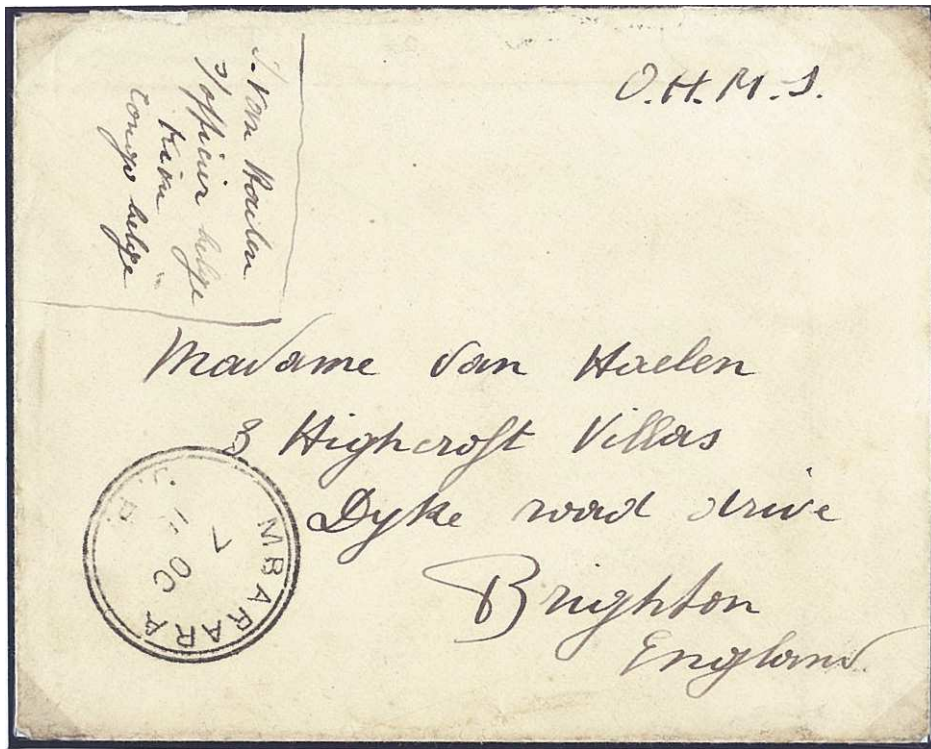 O.H.M.S.
s/officier belge
Congo belge
Madame Van Haelen
8 Highcroft Villas
Dyke road drive
Brighton
England
MBARARA
OC
7